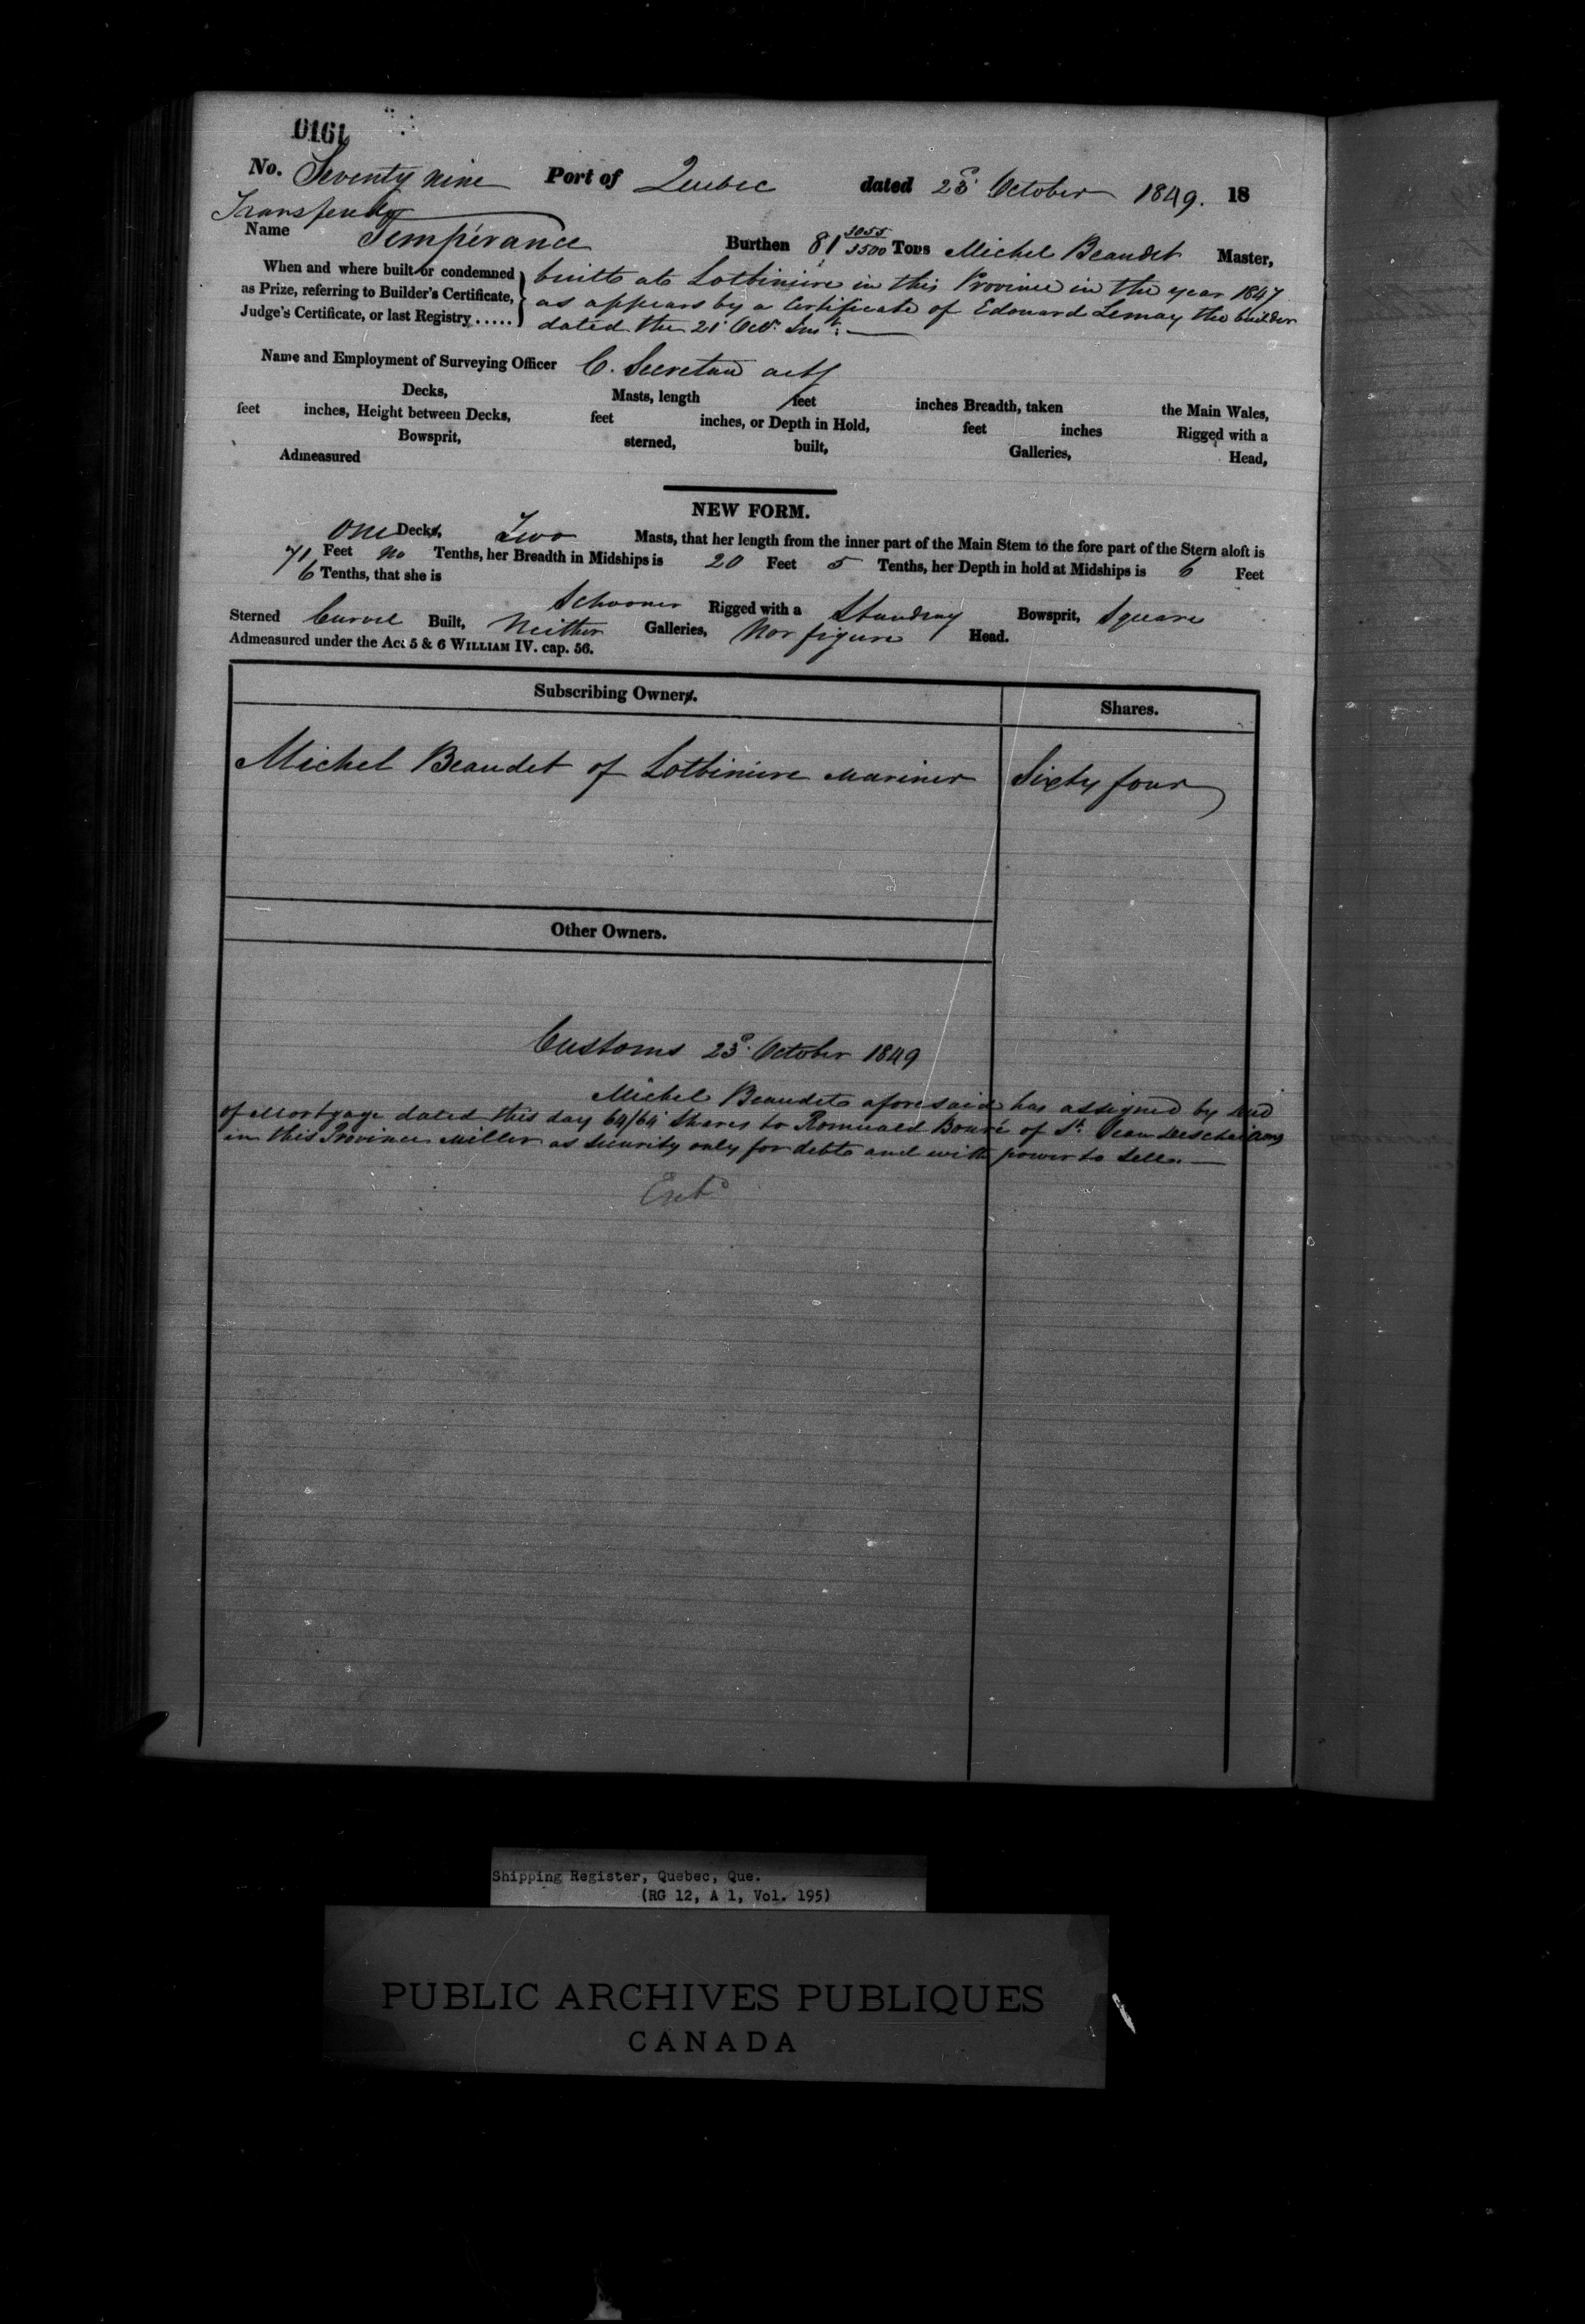 0161
No. Seventy nine Port of Quebec dated 23d October 1849. 18
Transferred
Name Tempérance Burthen 81 3055/3500 Tons Michel Beaudet Master,
When and where built or condemned as Prize, referring to Builder's Certificate, Judge's Certificate, or last Registry.....
built at Lotbiniere in this Province in the year 1847
as appears by a Certificate of Edouard Lemay the builder
dated the 21 Octr. Inst.
Name and Employment of Surveying Officer C. Secretan
Decks, Masts, length feet inches Breadth, taken the Main Wales,
feet inches, Height between Decks, feet inches, or Depth in Hold, feet inches Rigged with a
Bowsprit, sterned, built, Galleries, Head,
Admeasured
NEW FORM.
One Decks, Two Masts, that her length from the inner part of the Main Stem to the fore part of the Stern aloft is
71 Feet no Tenths, her Breadth in Midships is 20 Feet 5 Tenths, her Depth in hold at Midships is 6 Feet
6 Tenths, that she is Schooner Rigged with a Standing Bowsprit, Square
Sterned Carvel Built, Neither Galleries, Nor figure Head.
Admeasured under the Act 5 & 6 WILLIAM IV. cap. 56.
Subscribing Owners. Shares.
Michel Beaudet of Lotbiniere Mariner Sixty four
Other Owners.
Customs 23d. October 1849
Michel Beaudet aforesaid has assigned by Deed
of Mortgage dated this day 64/64 Shares to Romuald of St. Jean Deschaillons
in this Province Miller as security only for debt and with power to sell.
Shipping Register, Quebec, Que.
(RG 12, A 1, Vol. 195)
PUBLIC ARCHIVES PUBLIQUES
CANADA